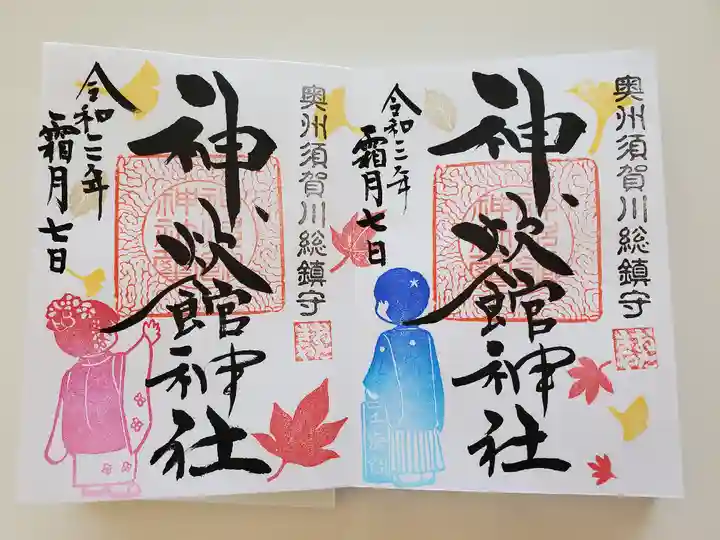 奥州須賀川総鎮守
神炊館神社
令和三年
霜月七日
奥州須賀川総鎮守
神炊館神社
令和三年
霜月七日